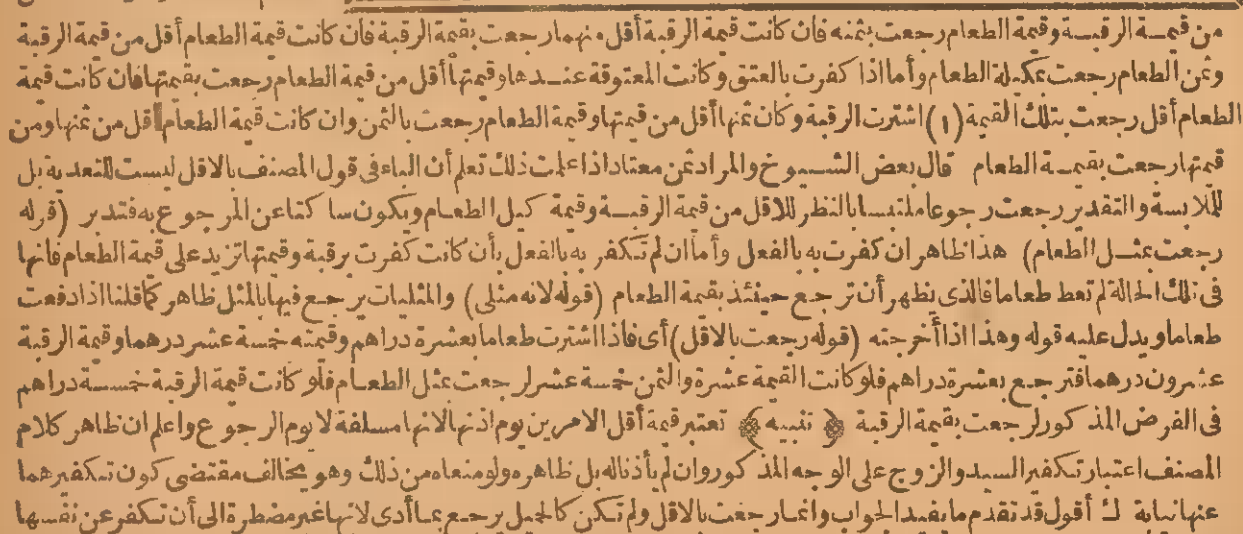 من قيمة الرقبة وقيمة الطعام رجعت بثمنه فان كانت قيمة الرقبة أقل منهما رجعت بقيمة الرقبة فان كانت قيمة الطعام أقل من قيمة الرقبة
وثمن الطعام رجعت بمكيلة الطعام وأما اذا كفرت بالعتق وكانت المعتوقة عندها وقيمتها أقل من قيمة الطعام رجعت بقيمتها فان كانت قيمة
الطعام أقل رجعت بتلك القيمة (١) اشترت الرقبة وكان ثمنها أقل من قيمتها وقيمة الطعام رجعت بالثمن وان كانت قيمة الطعام أقل من ثمنها ومن
قيمتها رجعت بقيمة الطعام قال بعض الشيوخ والمراد ثمن معتاد اذا علمت ذلك تعلم أن الباء فى قول المصنف بالاقل ليست للتعدية بل
للملابسة والتقدير رجعت رجوعا ملتبسا بالنظر للاقل من قيمة الرقبة وقيمة كيل الطعام ويكون ساكتا عن المرجوع به فتدبر (قوله
رجعت بمثل الطعام) هذا ظاهر ان كفرت به بالفعل وأما ان لم تكفر به بالفعل بأن كانت كفرت برقبة وقيمتها تزيد على قيمة الطعام فانها
فى تلك الحالة لم تعط طعاما فالذى يظهر أن ترجع حينئذ بقيمة الطعام (قوله لانه مثلى) والمثليات يرجع فيها بالمثل ظاهر كما قلنا اذا دفعت
طعاما ويدل عليه قوله وهذا اذا أخرجته (قوله رجعت بالاقل) أى فاذا اشترت طعاما بعشرة دراهم وقيمته خمسة عشر درهما وقيمة الرقبة
عشرون درهما فترجع بعشرة دراهم فلو كانت القيمة عشرة والثمن خمسة عشر لرجعت بمثل الطعام فلو كانت قيمة الرقبة خمسة دراهم
فى الفرض المذكور لرجعت بقيمة الرقبة ﴿ تنبيه ﴾ تعتبر قيمة أقل الامرين يوم اذنها لانها مسلفة لا يوم الرجوع واعلم ان ظاهر كلام
المصنف اعتبار تكفير السيد والزوج على الوجه المذكور وان لم يأذنا له بل ظاهره ولو منعاه من ذلك وهو يخالف مقتضى كون تكفيرهما
عنها نيابة ك أقول قد تقدم ما يفيد الجواب وانما رجعت بالاقل ولم تكن كالحميل يرجع بما أدى لانها غير مضطرة الى أن تكفر عن نفسها